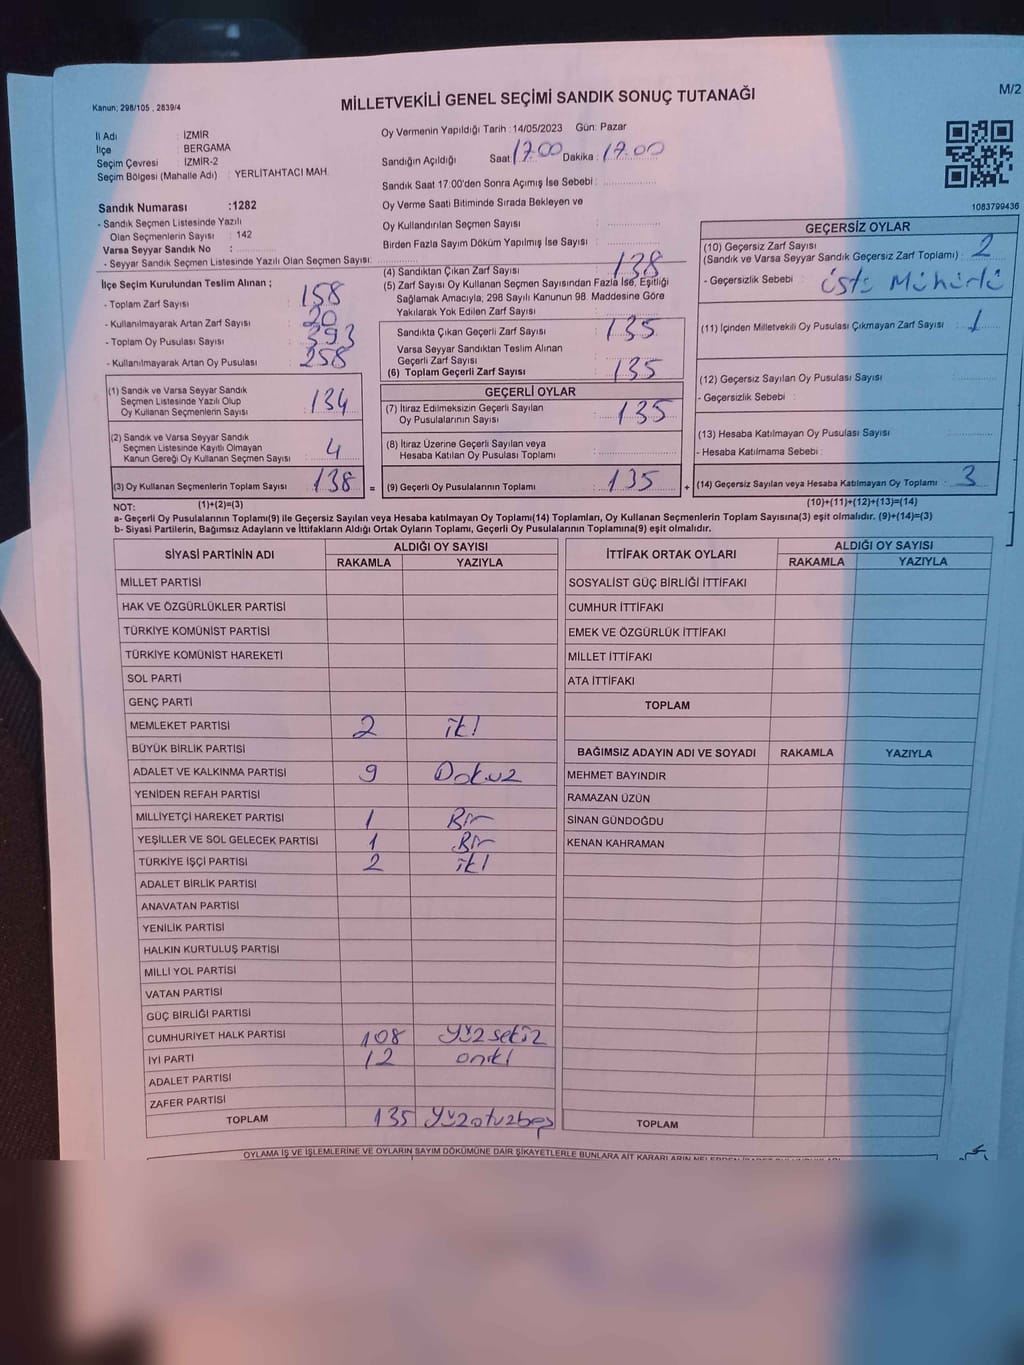 Kanun: 298/105 , 2839/4
MİLLETVEKİLİ GENEL SEÇİMİ SANDIK SONUÇ TUTANAĞI
M/2
İl Adı : İZMİR
İlçe : BERGAMA
Seçim Çevresi : İZMİR-2
Seçim Bölgesi (Mahalle Adı) : YERLİTAHTACI MAH.
Sandık Numarası :1282
- Sandık Seçmen Listesinde Yazılı
Olan Seçmenlerin Sayısı : 142
Varsa Seyyar Sandık No :
- Seyyar Sandık Seçmen Listesinde Yazılı Olan Seçmen Sayısı:
Oy Vermenin Yapıldığı Tarih :14/05/2023 Gün: Pazar
Sandığın Açıldığı Saat: 17.00 Dakika : 17.00
Sandık Saat 17:00'den Sonra Açımış İse Sebebi :
Oy Verme Saati Bitiminde Sırada Bekleyen ve
Oy Kullandırılan Seçmen Sayısı :
Birden Fazla Sayım Döküm Yapılmış İse Sayısı :
1083799436
İlçe Seçim Kurulundan Teslim Alınan ;
- Toplam Zarf Sayısı : 158
- Kullanılmayarak Artan Zarf Sayısı : 20
- Toplam Oy Pusulası Sayısı : 393
- Kullanılmayarak Artan Oy Pusulası : 258
(1) Sandık ve Varsa Seyyar Sandık
Seçmen Listesinde Yazılı Olup
Oy Kullanan Seçmenlerin Sayısı : 134
(2) Sandık ve Varsa Seyyar Sandık
Seçmen Listesinde Kayıtlı Olmayan
Kanun Gereği Oy Kullanan Seçmen Sayısı : 4
(3) Oy Kullanan Seçmenlerin Toplam Sayısı : 138 =
(1)+(2)=(3)
(4) Sandıktan Çıkan Zarf Sayısı : 138
(5) Zarf Sayısı Oy Kullanan Seçmen Sayısından Fazla İse, Eşitliği
Sağlamak Amacıyla, 298 Sayılı Kanunun 98. Maddesine Göre
Yakılarak Yok Edilen Zarf Sayısı :
Sandıkta Çıkan Geçerli Zarf Sayısı : 135
Varsa Seyyar Sandıktan Teslim Alınan
Geçerli Zarf Sayısı :
(6) Toplam Geçerli Zarf Sayısı : 135
GEÇERLİ OYLAR
(7) İtiraz Edilmeksizin Geçerli Sayılan
Oy Pusulalarının Sayısı : 135
(8) İtiraz Üzerine Geçerli Sayılan veya
Hesaba Katılan Oy Pusulası Toplamı :
(9) Geçerli Oy Pusulalarının Toplamı : 135 +
GEÇERSİZ OYLAR
(10) Geçersiz Zarf Sayısı
(Sandık ve Varsa Seyyar Sandık Geçersiz Zarf Toplamı) : 2
- Geçersizlik Sebebi : üstü Mühürlü
(11) İçinden Milletvekili Oy Pusulası Çıkmayan Zarf Sayısı : 1
(12) Geçersiz Sayılan Oy Pusulası Sayısı :
- Geçersizlik Sebebi :
(13) Hesaba Katılmayan Oy Pusulası Sayısı :
- Hesaba Katılmama Sebebi :
(14) Geçersiz Sayılan veya Hesaba Katılmayan Oy Toplamı : 3
(10)+(11)+(12)+(13)=(14)
NOT:
a- Geçerli Oy Pusulalarının Toplamı(9) ile Geçersiz Sayılan veya Hesaba katılmayan Oy Toplamı(14) Toplamları, Oy Kullanan Seçmenlerin Toplam Sayısına(3) eşit olmalıdır. (9)+(14)=(3)
b- Siyasi Partilerin, Bağımsız Adayların ve İttifakların Aldığı Ortak Oyların Toplamı, Geçerli Oy Pusulalarının Toplamına(9) eşit olmalıdır.
SİYASİ PARTİNİN ADI ALDIĞI OY SAYISI
RAKAMLA YAZIYLA
MİLLET PARTİSİ
HAK VE ÖZGÜRLÜKLER PARTİSİ
TÜRKİYE KOMÜNİST PARTİSİ
TÜRKİYE KOMÜNİST HAREKETİ
SOL PARTİ
GENÇ PARTİ
MEMLEKET PARTİSİ 2 iki
BÜYÜK BİRLİK PARTİSİ
ADALET VE KALKINMA PARTİSİ 9 Dokuz
YENİDEN REFAH PARTİSİ
MİLLİYETÇİ HAREKET PARTİSİ 1 Bir
YEŞİLLER VE SOL GELECEK PARTİSİ 1 Bir
TÜRKİYE İŞÇİ PARTİSİ 2 iki
ADALET BİRLİK PARTİSİ
ANAVATAN PARTİSİ
YENİLİK PARTİSİ
HALKIN KURTULUŞ PARTİSİ
MİLLİ YOL PARTİSİ
VATAN PARTİSİ
GÜÇ BİRLİĞİ PARTİSİ
CUMHURİYET HALK PARTİSİ 108 yüzsekiz
İYİ PARTİ 12 oniki
ADALET PARTİSİ
ZAFER PARTİSİ
TOPLAM 135 Yüzotuzbeş
İTTİFAK ORTAK OYLARI ALDIĞI OY SAYISI
RAKAMLA YAZIYLA
SOSYALİST GÜÇ BİRLİĞİ İTTİFAKI
CUMHUR İTTİFAKI
EMEK VE ÖZGÜRLÜK İTTİFAKI
MİLLET İTTİFAKI
ATA İTTİFAKI
TOPLAM
BAĞIMSIZ ADAYIN ADI VE SOYADI RAKAMLA YAZIYLA
MEHMET BAYINDIR
RAMAZAN ÜZÜN
SİNAN GÜNDOĞDU
KENAN KAHRAMAN
TOPLAM
OYLAMA İŞ VE İŞLEMLERİNE VE OYLARIN SAYIM DÖKÜMÜNE DAİR ŞİKAYETLERLE BUNLARA AİT KARARLARIN